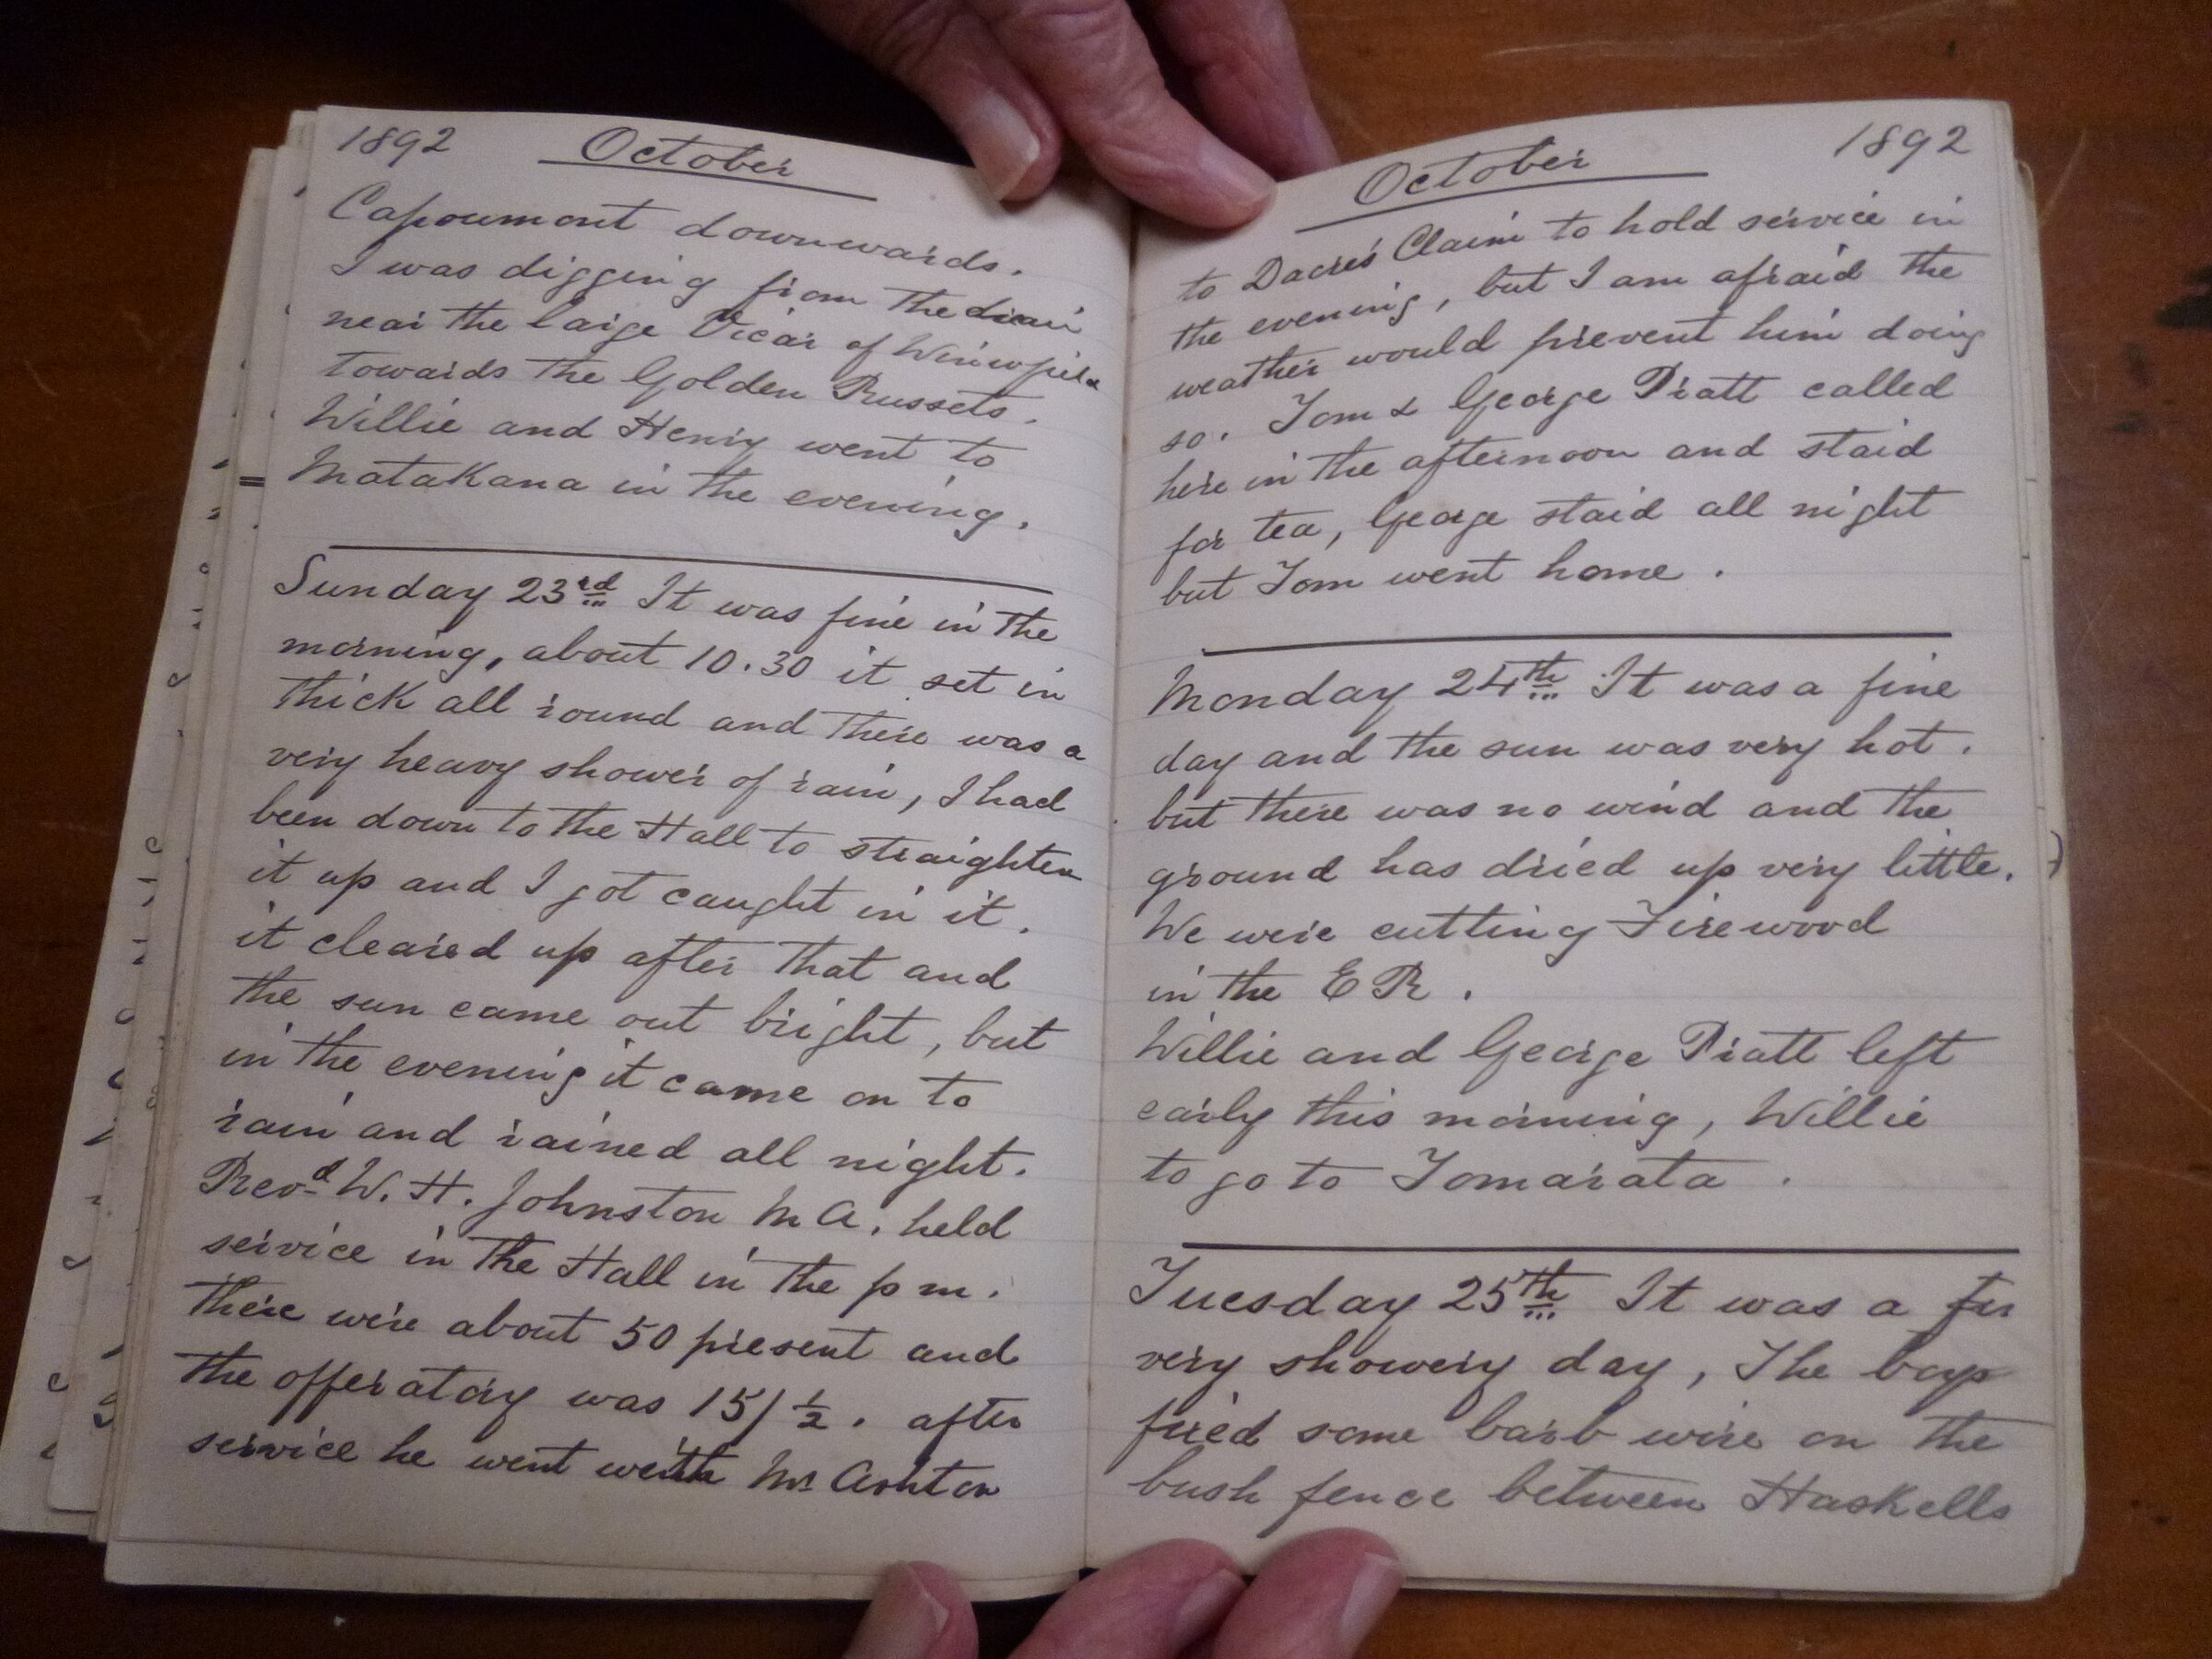 1892 October
Capoumont downwards.
I was digging from the drain
near the large Vicar of Winwfield
towards the Golden Russets.
Willie and Henry went to
Matakana in the evening.
Sunday 23rd It was fine in the
morning, about 10.30 it set in
thick all round and there was a
very heavy shower of rain, I had
been down to the Hall to straighten
it up and I got caught in it.
it cleared up after that and
the sun came out bright, but
in the evening it came on to
rain and rained all night.
Revd W. H. Johnston M A. held
service in the Hall in the p m.
there were about 50 present and
the offeratory was 15/½. after
service he went with Mr Ashton
October 1892
to Dacre's Claim to hold service in
the evening, but I am afraid the
weather would prevent him doing
so. Tom & George Pratt called
here in the afternoon and staid
for tea, George staid all night
but Tom went home.
Monday 24th It was a fine
day and the sun was very hot.
but there was no wind and the
ground has dried up very little.
We were cutting Firewood
in the E R.
Willie and George Pratt left
early this morning, Willie
to go to Tomarata.
Tuesday 25th It was a
very showery day, The boys
fixed some barb wire on the
bush fence between Haskells